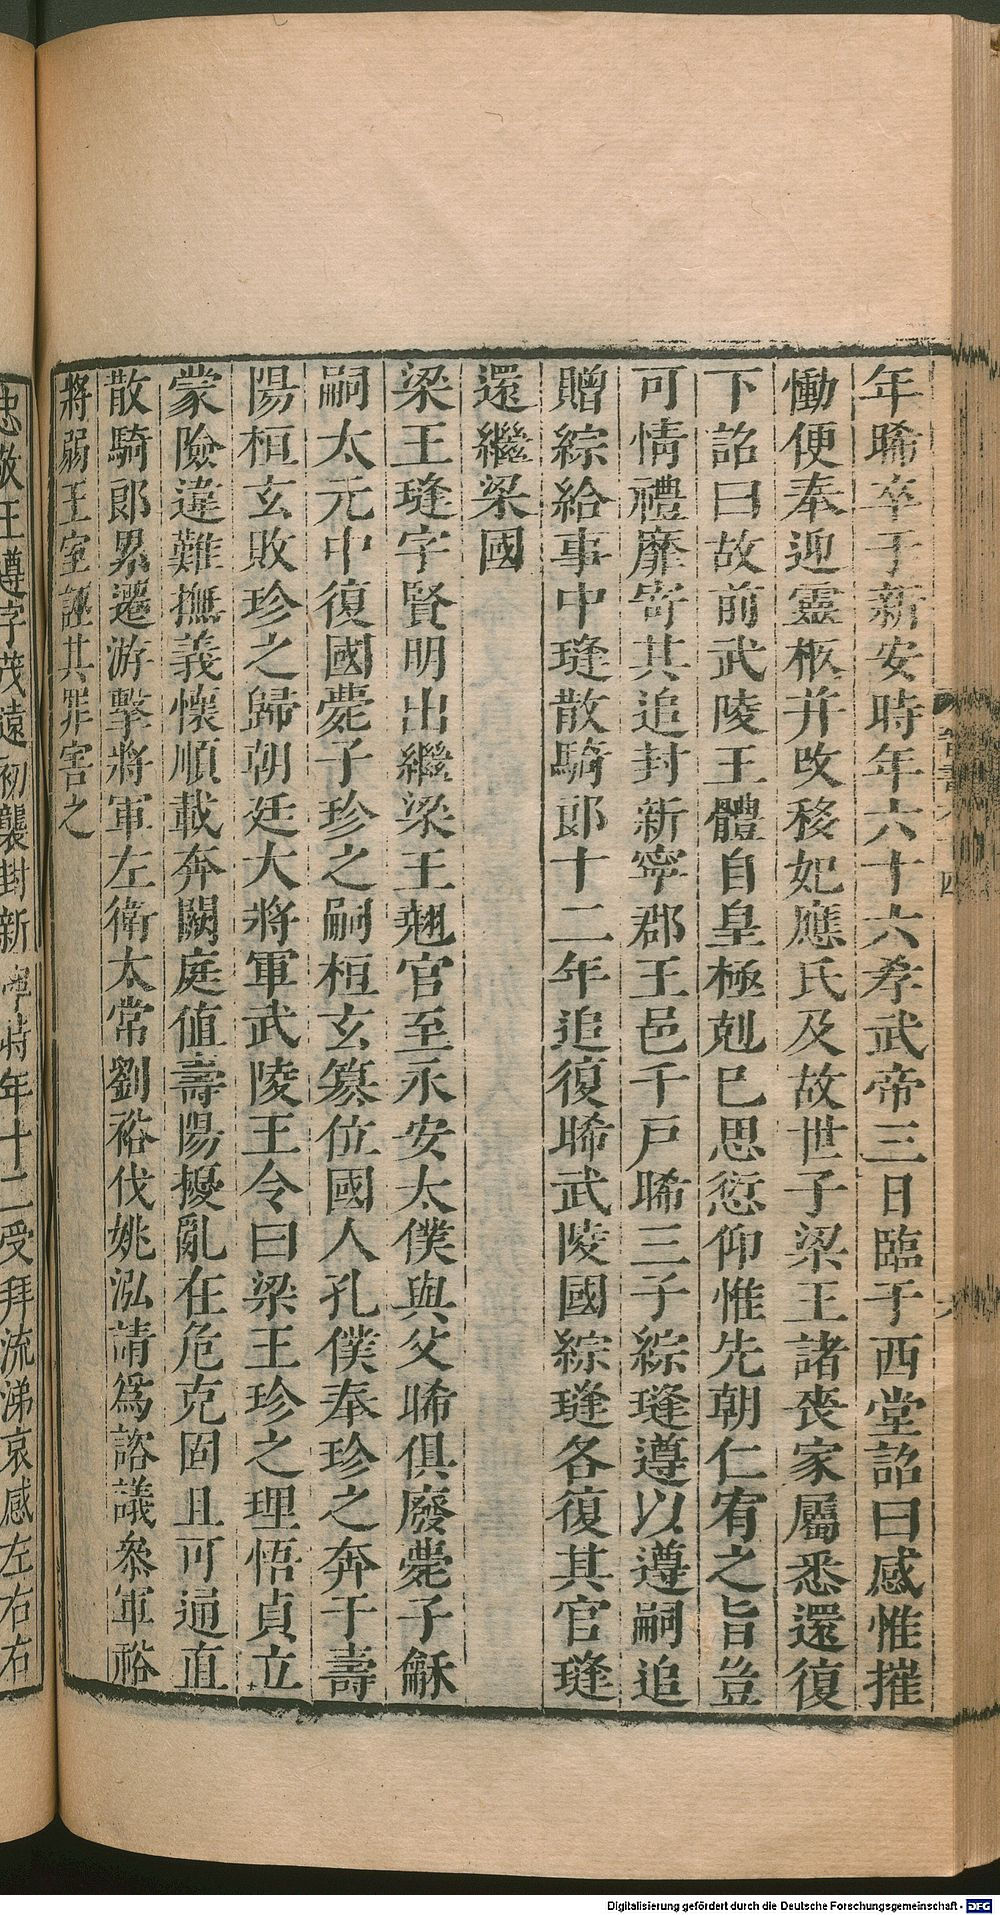 年晞卒于新安時年六十六孝武帝三日臨于西堂詔曰感惟摧
慟便奉迎靈柩并改移妃應氏及故世子梁王諸喪家屬悉還復
下詔曰故前武陵王體自皇極剋已思愆仰惟先朝仁宥之旨豈
可情禮靡寄其追封新寧郡王邑千戶晞三子綜㻭遵以遵嗣追
贈綜給事中㻭散騎郎十二年追復晞武陵國綜㻭各復其官㻭
還繼梁國
梁王㻭字賢明出繼梁王翹官至永安太僕與父晞俱廢薨子龢
嗣太元中復國薨子珍之嗣桓玄篡位國人孔僕奉珍之奔于壽
陽桓玄敗珍之歸朝廷大將軍武陵王令曰梁王珍之理悟貞立
蒙險違難撫義懷順載奔闕庭值壽陽擾亂在危克固且可通直
散騎郎累遷游擊將軍左衛太常劉裕伐姚泓請爲諮議參軍裕
將弱王室誣其罪害之
忠敬王遵字茂遠初襲封新寧時年十二受拜流涕哀感左右右
晉書
四
Digitalisierung gefördert durch die Deutsche Forschungsgemeinschaft - DFG